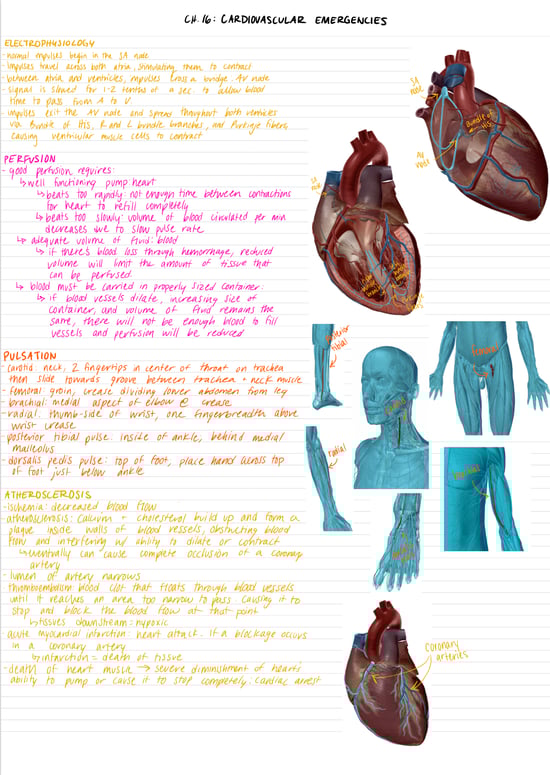 CH. 16: CARDIOVASCULAR EMERGENCIES
ELECTROPHYSIOLOGY
- normal impulses begin in the SA node
- impulses travel across both atria, stimulating them to contract
- between atria and ventricles, impulses cross a bridge: AV node
- signal is slowed for 1-2 tenths of a sec. to allow blood
time to pass from A to V.
- impulses exit the AV node and spread throughout both ventricles
via Bundle of His, R and L bundle branches, and Purkinje fibers,
causing ventricular muscle cells to contract
SA node
Bundle of His
AV node
PERFUSION
- good perfusion requires:
↳ well functioning pump: heart
↳ beats too rapidly: not enough time between contractions
for heart to refill completely
↳ beats too slowly: volume of blood circulated per min
decreases due to slow pulse rate
↳ adequate volume of fluid: blood
↳ if there's blood loss through hemorrhage, reduced
volume will limit the amount of tissue that
can be perfused
↳ blood must be carried in properly sized container:
↳ if blood vessels dilate, increasing size of
container, and volume of fluid remains the
same, there will not be enough blood to fill
vessels and perfusion will be reduced
SA node
PULSATION
- carotid: neck, 2 fingertips in center of throat on trachea
then slide towards groove between trachea + neck muscle
- femoral: groin, crease dividing lower abdomen from leg
- brachial: medial aspect of elbow @ crease
- radial: thumb-side of wrist, one fingerbreadth above
wrist crease
- posterior tibial pulse: inside of ankle, behind medial
malleolus
- dorsalis pedis pulse: top of foot, place hand across top
of foot just below ankle
posterior tibial
femoral
radial
ATHEROSCLEROSIS
- ischemia: decreased blood flow
- atherosclerosis: calcium + cholesterol build up and form a
plaque inside walls of blood vessels, obstructing blood
flow and interfering w/ ability to dilate or contract
↳ eventually can cause complete occlusion of a coronary
artery
- lumen of artery narrows
- thromboembolism: blood clot that floats through blood vessels
until it reaches an area too narrow to pass causing it to
stop and block the blood flow at that point
↳ tissues downstream: hypoxic
- acute myocardial infarction: heart attack. If a blockage occurs
in a coronary artery
↳ infarction = death of tissue
- death of heart muscle → severe diminishment of heart's
ability to pump or cause it to stop completely: cardiac arrest
coronary
arteries